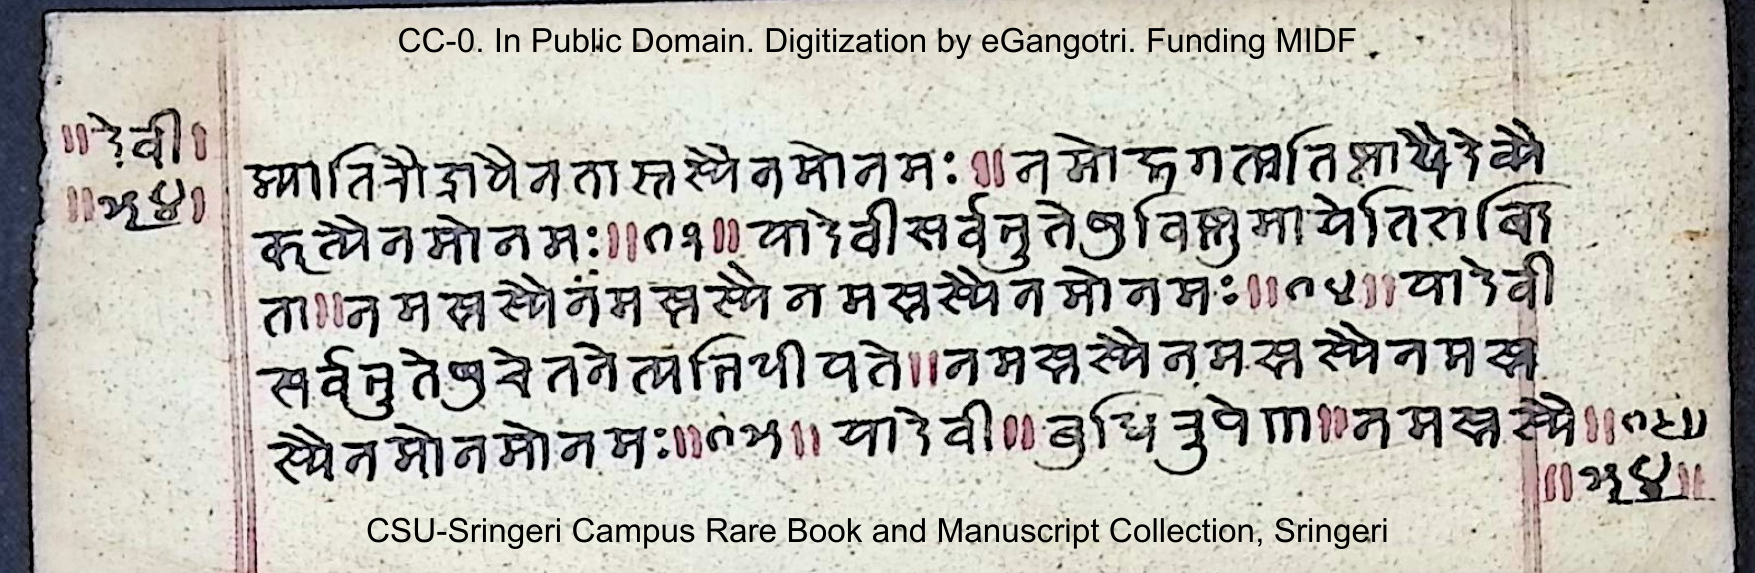 CC-0. In Public Domain. Digitization by eGangotri. Funding MIDF
॥देवी।
॥५४।
म्यातिरौद्रायैनतास्तस्यैनमोनमः॥नमोजगत्प्रतिष्ठायैदेव्यै
कृत्यैनमोनमः॥१३॥यादेवीसर्वभुतेषुविष्णुमायेतिशब्दि
ता॥नमस्तस्यैनमस्तस्यैनमस्तस्यैनमोनमः॥१४॥यादेवी
सर्वभुतेषुचेतनेत्यभिधीयते॥नमस्तस्यैनमस्तस्यैनमस्त
स्यैनमोनमोनमः॥१५॥यादेवी॥बुधिरुपेण॥नमस्तस्यै॥१६॥
॥५४॥
CSU-Sringeri Campus Rare Book and Manuscript Collection, Sringeri